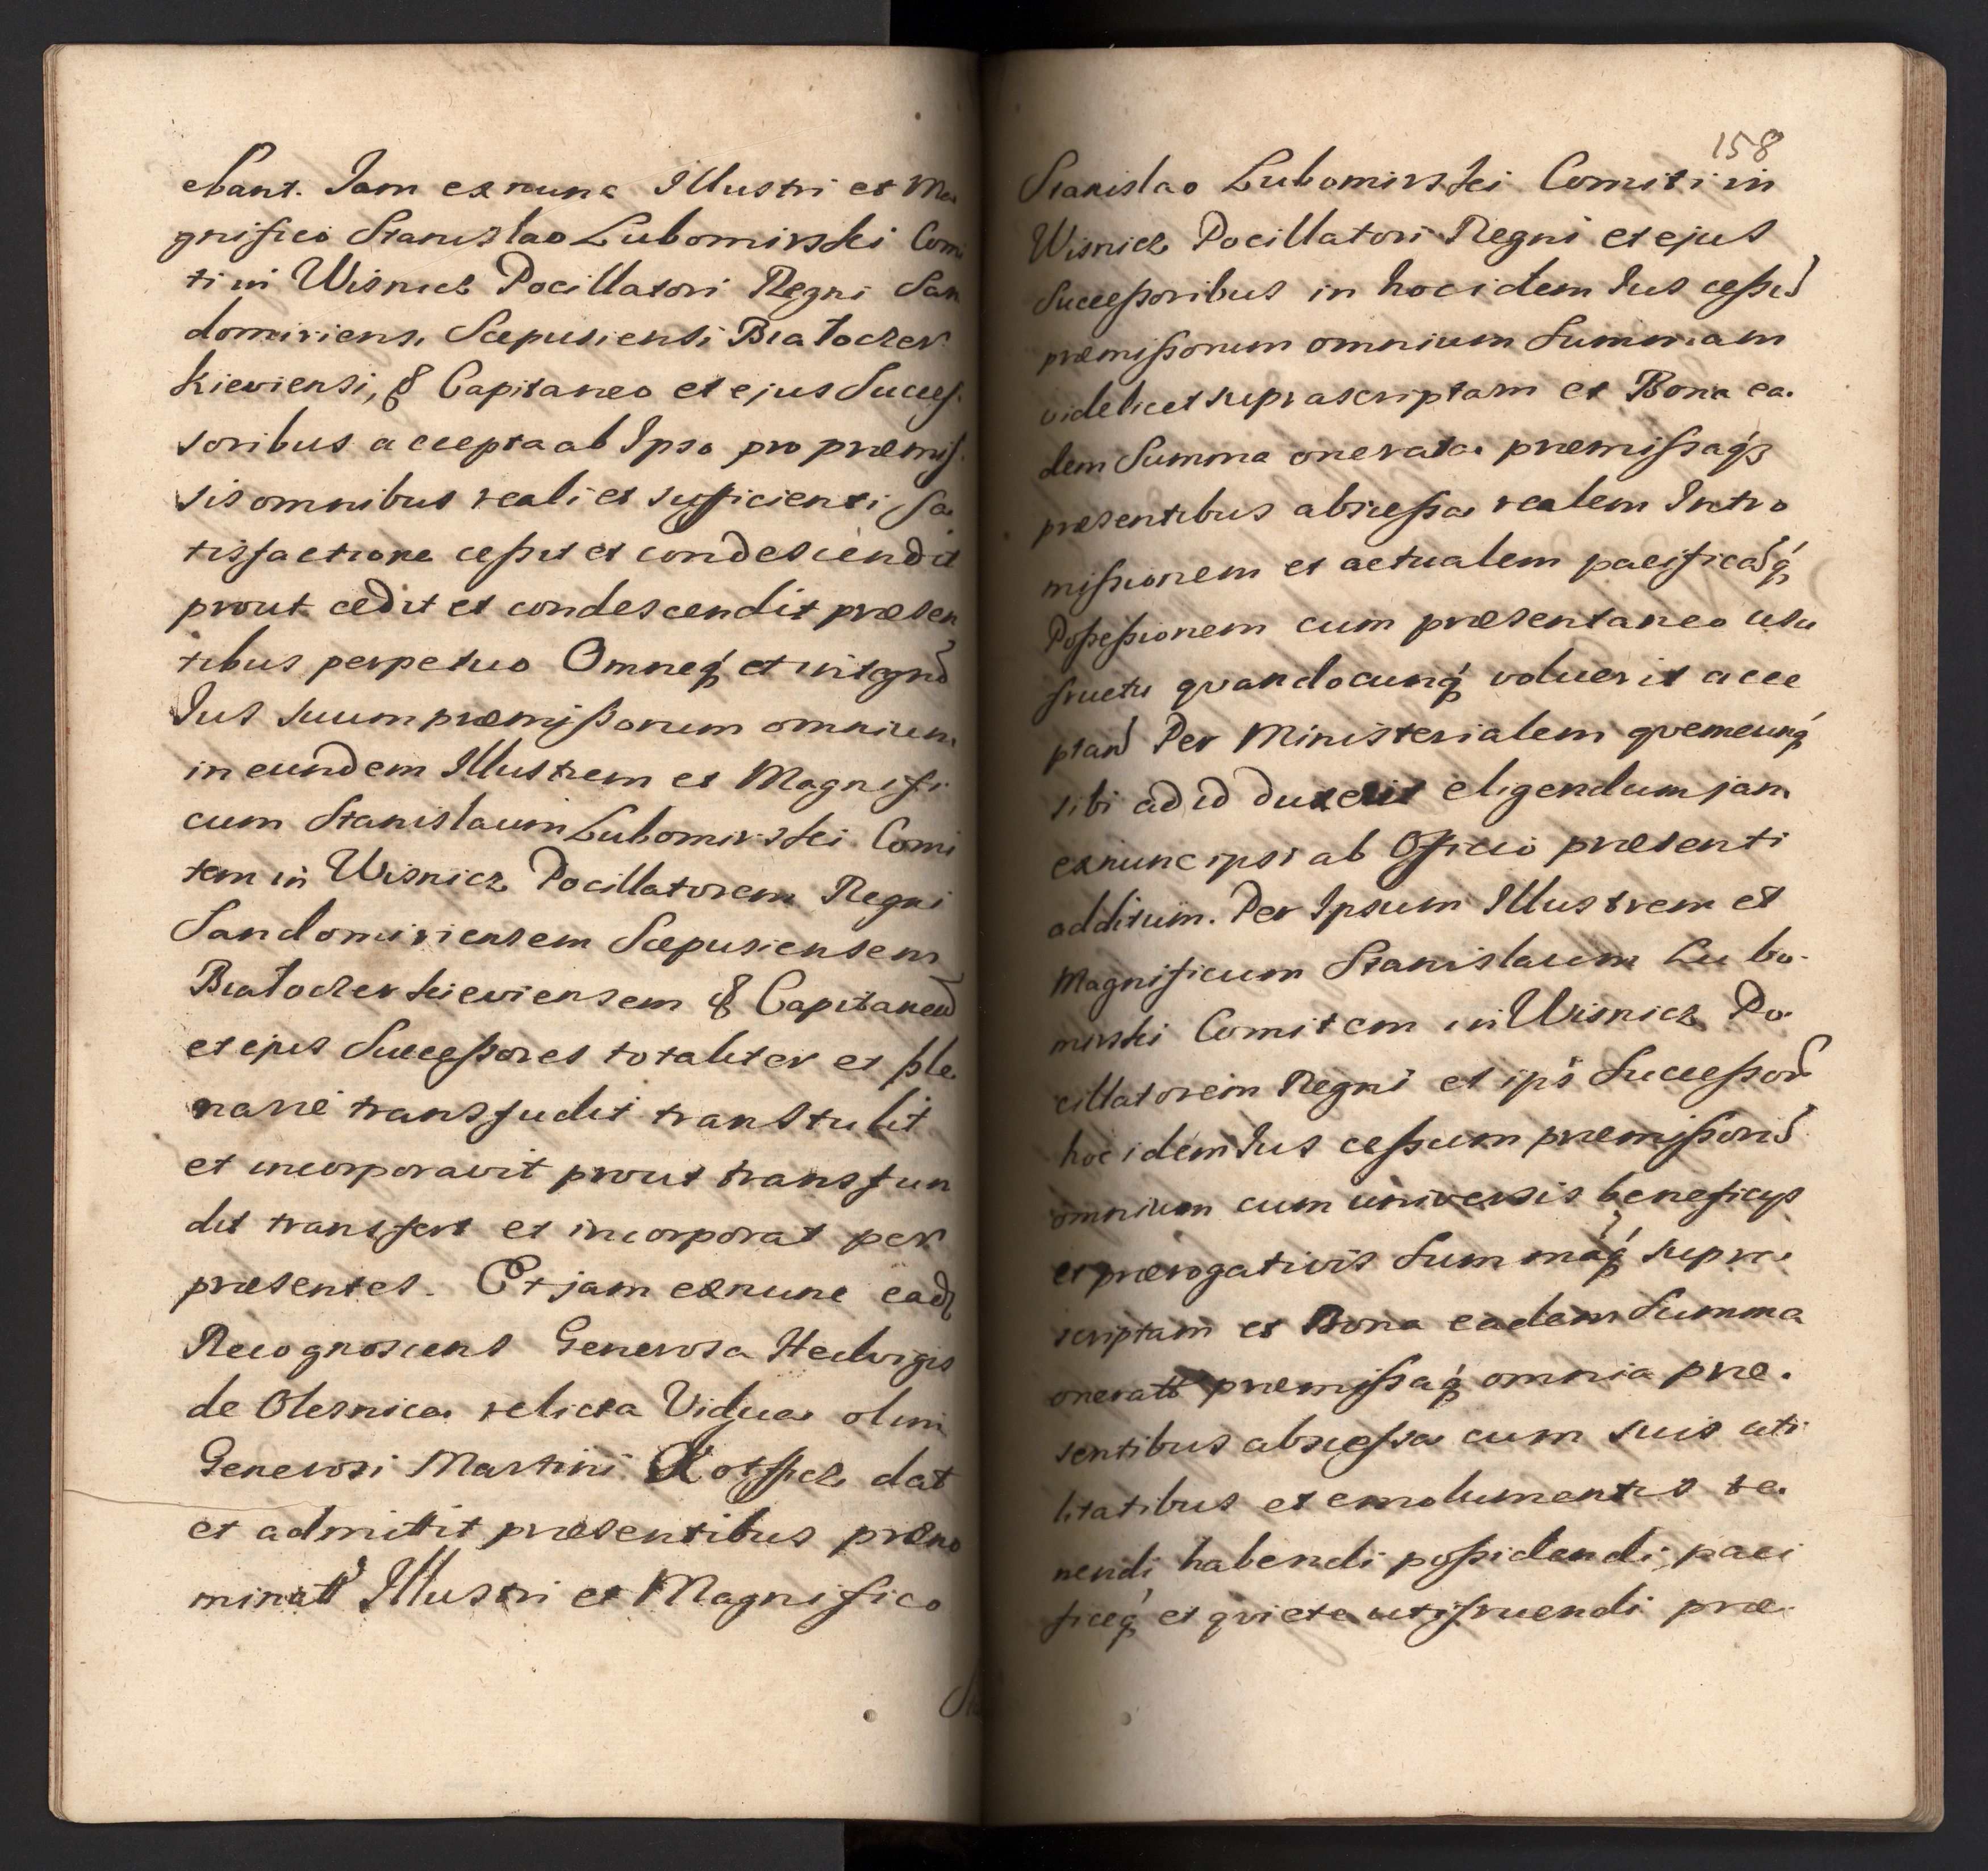 ebant. Jam ex nunc Illustri et Ma
gnifico Stanislao Lubomirski Comi
ti in Wisnicz Pocillatori Regni San
domiriensi Scepusiensi Białocer
kieviensi, & Capitaneo et ejus Succes.
soribus accepta ab Ipso pro præmis.
sis omnibus reali et sufficienti sa
tisfactione cessit et condescendit
prout cedit et condescendit præsen
tibus perpetuo Omneq́ et integrũ
Jus suum præmissorum omnium
in eundem Illustrem et Magnifi
cum Stanislaum Lubomirski Comi
tem in Wisnicz Pocillatorem Regni
Sandomiriensem Scepusiensem
Białocerkieviensem & Capitaneũ
et ejus Successores totaliter et ple
narie transfudit transtulit
et incorporavit prout transfun
dit transfert et incorporat per
præsentes. Et jam exnunc ead̃
Recognoscens Generosa Hedvigis
de Olesnica relicta Vidua olim
Generosi Martini dat
et admittit præsentibus præno
minatt̃ Illustri et Magnifico
158
Stanislao Lubomirski Comiti in
Wisnicz Pocillatori Regni et ejus
Successoribus in hoc idem Jus cessũ
præmissorum omnium Summam
videlicet suprascriptam et Bona ea.
dem Summa onerata præmissaq́3
præsentibus abscessa realem Intro
missionem et actualem pacificãq́
Possessionem cum præsentaneo usu
fructu qvandocunq́ voluerit acce
ptañ Per Ministerialem qvemcunq́
sibi ad id duxerit eligendum jam
exnunc ipsi ab Officio præsenti
additum. Per Ipsum Illustrem et
Magnificum Stanislaum Lubo.
mirski Comitem in Wisnicz Po.
cillatorem Regni et ips̃ Successor̃
hoc idem Jus cessum præmissorũ
omnium cum universis beneficijs
et prærogativis Summãq́ supra
scriptam et Bona eadem Summa
oneratt̃ præmissaq́ omnia præ.
sentibus abscessa cum suis uti
litatibus et emolumentis te.
nendi habendi possidendi paci
ficeq́ et qviete utifruendi præ.